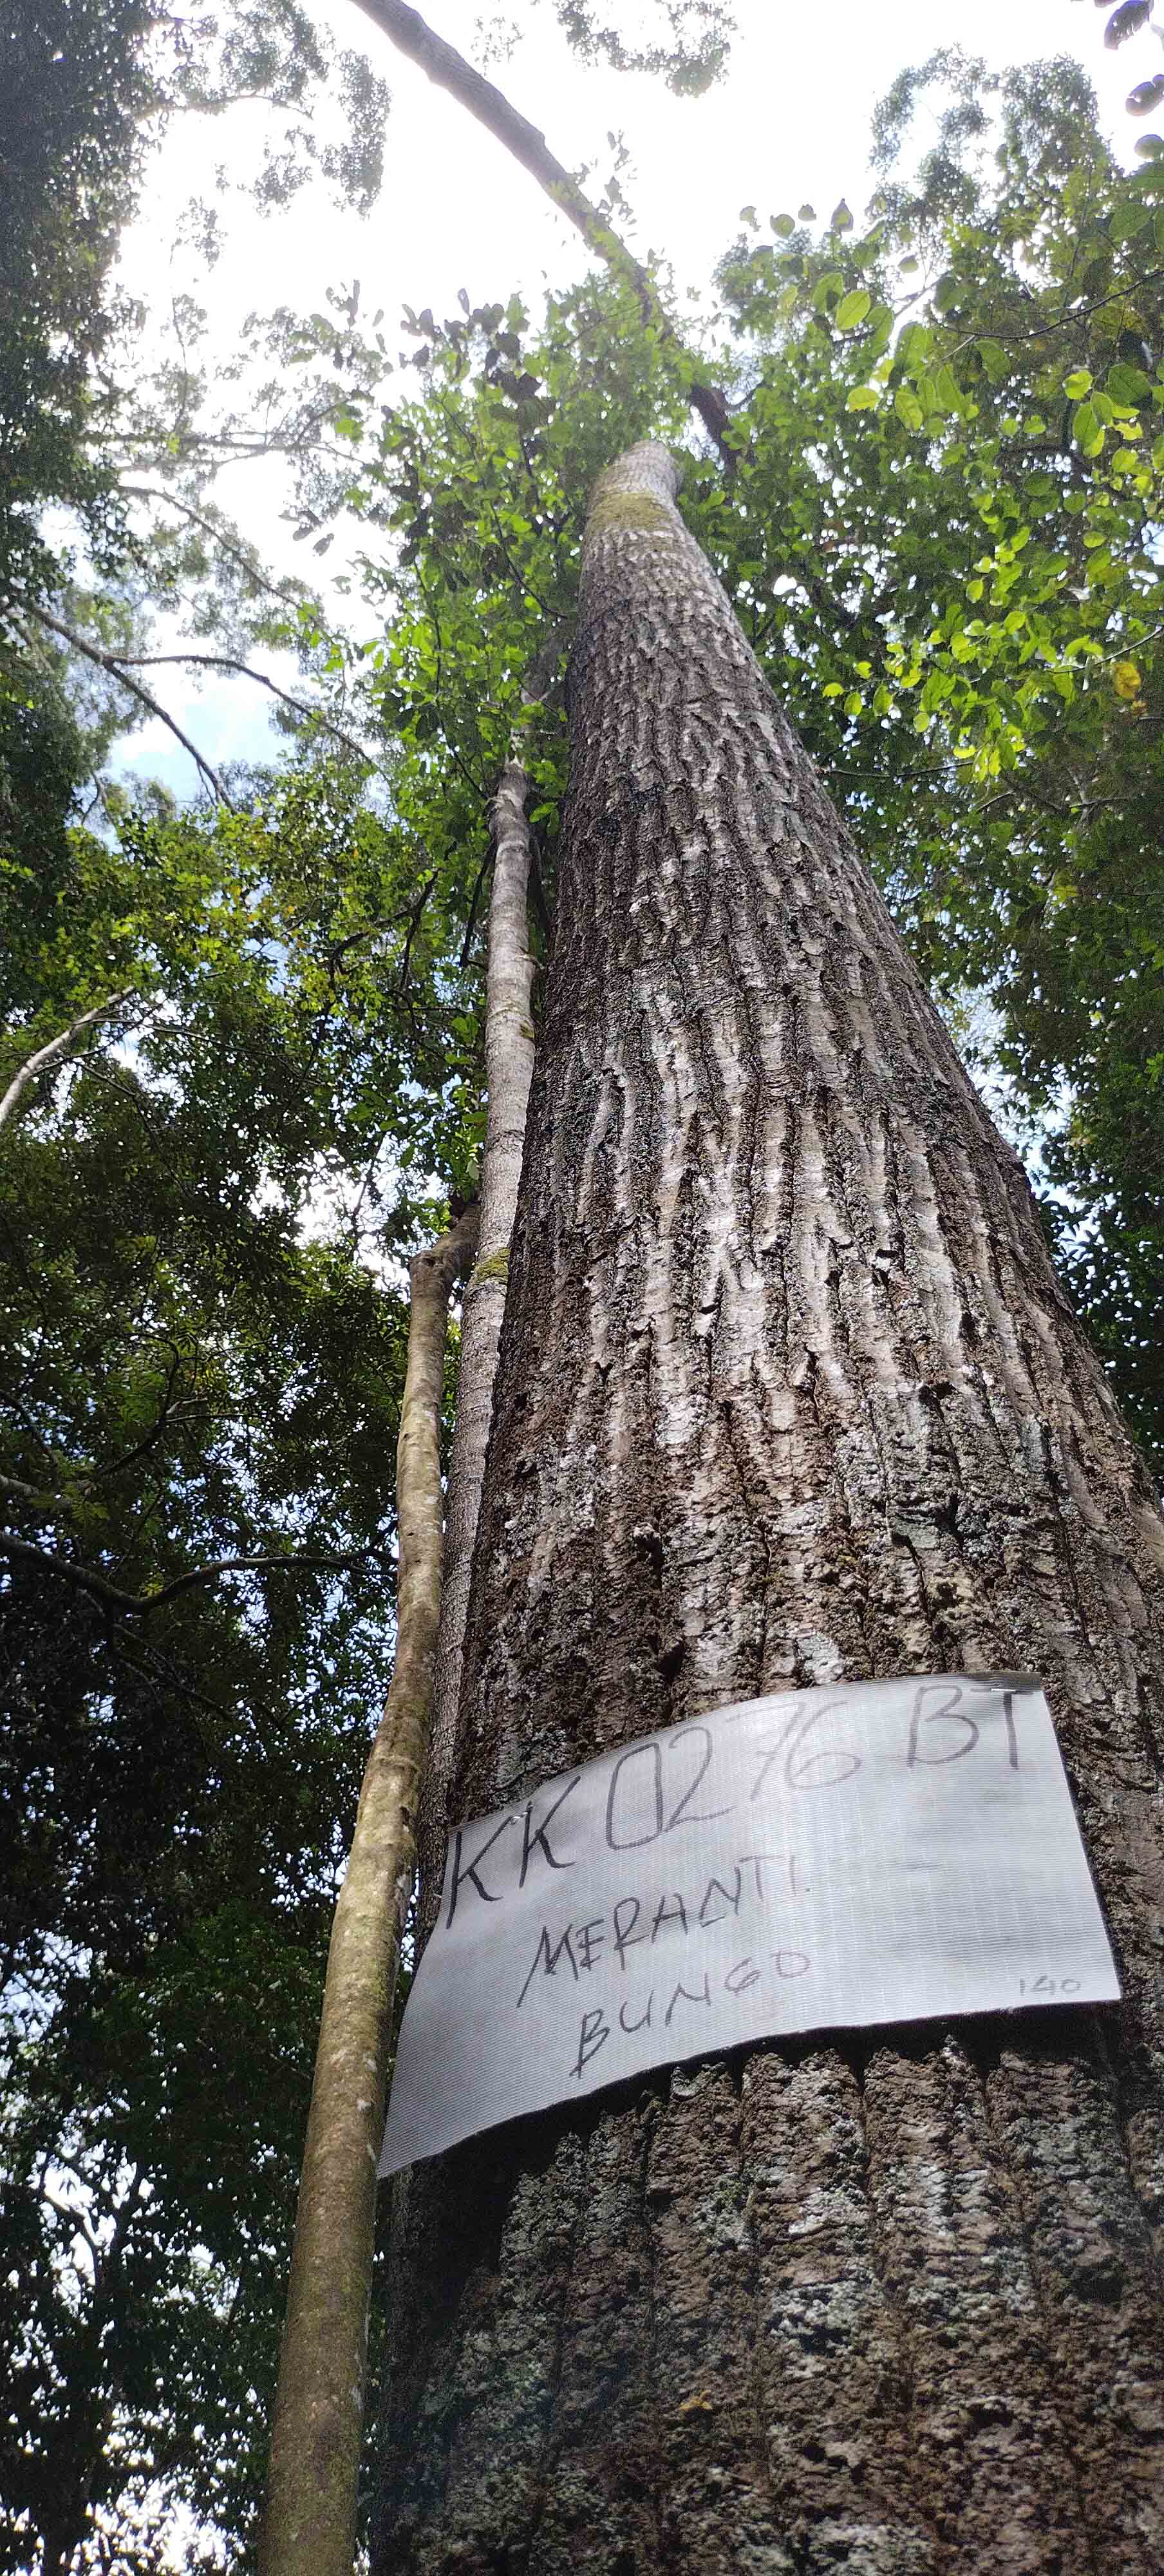 KK 0276 BT
MERANTI
BUNGO
140